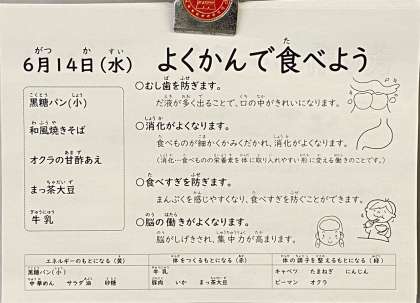 6月14日(水)
よくかんで食べよう
黒糖パン(小)
和風焼きそば
オクラの甘酢あえ
まっ茶大豆
牛乳
○むし歯を防ぎます。
だ液が多く出ることで、口の中がきれいになります。
○消化がよくなります。
食べものが細かくかみくだかれ、消化がよくなります。
(消化…食べものの栄養素を体に取り入れやすい形に変える働きのことです。)
○食べすぎを防ぎます。
まんぷくを感じやすくなり、食べすぎを防ぐことができます。
○脳の働きがよくなります。
脳がしげきされ、集中力が高まります。
エネルギーのもとになる(黄)
体をつくるもとになる(赤)
体の調子を整えるもとになる(緑)
黒糖パン(小)
中華めん サラダ油 砂糖
牛乳
豚肉 いか まっ茶大豆
キャベツ たまねぎ にんじん
ピーマン オクラ